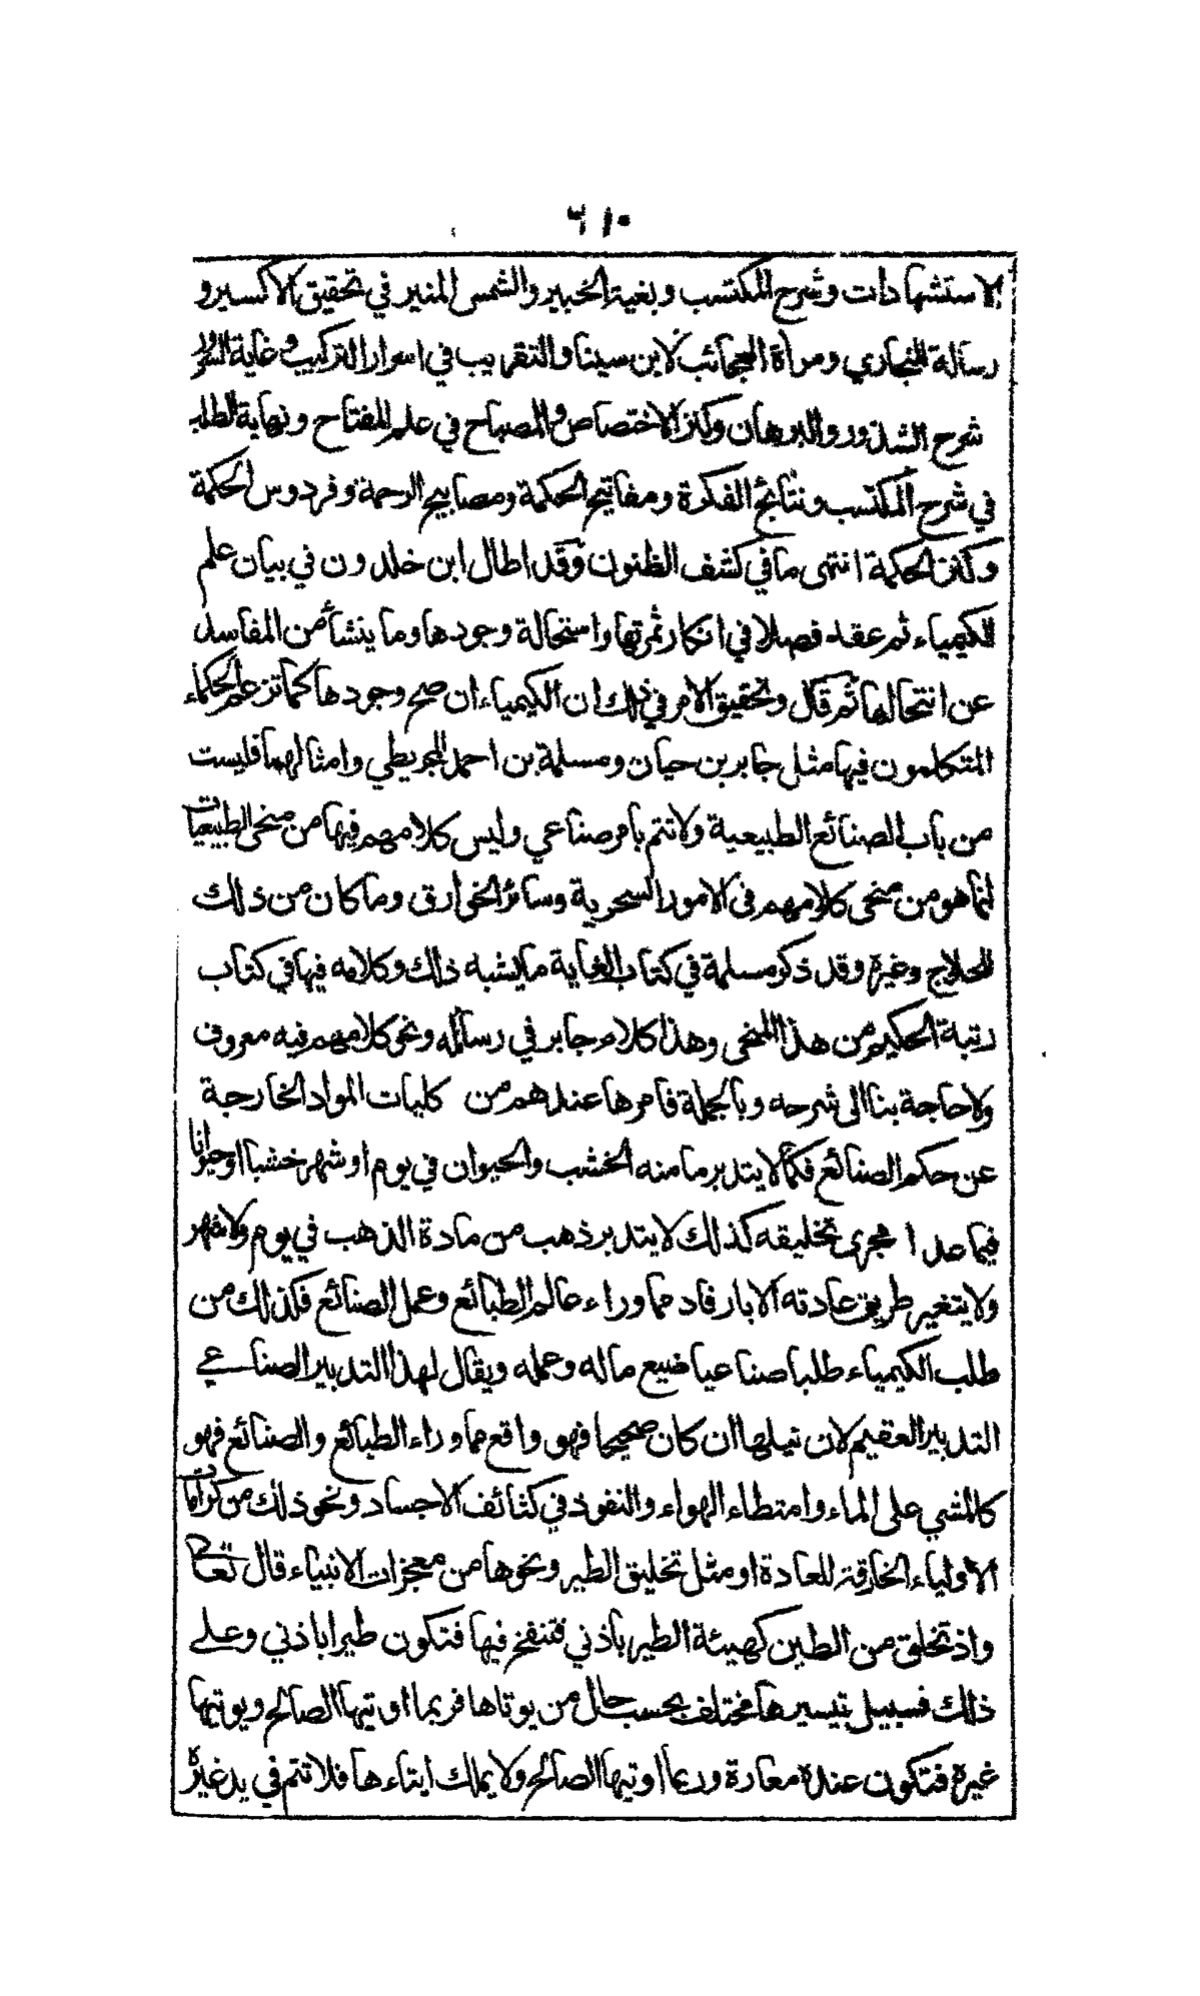 ٦١٠
بلاستشهادات وشرح المكتسب وبغية الخبير والشمس المنير في تحقيق الاكسير و
رسالة للبخاري ومرأة العجائب لابن سينا والتقريب في اسرار التركيب وغاية السرور
شرح الشذور والبرهان وكنز الاختصاص والمصباح في علم المفتاح ونهاية الطلب
في شرح المكتسب ونتائج الفكرة ومفاتيح الحكمة ومصابيح الرحمة وفردوس الحكمة
وكنز الحكمة انتهى ما في كشف الظنون وقد اطال ابن خلدون في بيان علم
الكيمياء ثم عقد فصلا في انكار ثمرتها واستحالة وجودها وما ينشأ من المفاسد
عن انتحالها ثم قال وتحقيق الامر في ذلك ان الكيمياء ان صح وجودها كما تزعم الحكماء
المتكلمون فيها مثل جابر بن حيان ومسلمة بن احمد المجريطي وامثالهما فليست
من باب الصنائع الطبيعية ولا تتم بامر صناعي وليس كلامهم فيها من منحى الطبيعيات
انما هو من منحى كلامهم في الامور السحرية وسائر الخوارق وما كان من ذلك
للحلاج وغيره وقد ذكر مسلمة في كتاب الغاية ما يشبه ذلك وكلامه فيها في كتاب
رتبة الحكيم من هذا المنحى وهذا كلام جابر في رسائله ونحو كلامهم فيه معروف
ولا حاجة بنا الى شرحه وبالجملة فامرها عندهم من كليات المواد الخارجة
عن حكم الصنائع فكما لا يتدبر ما منه الخشب والحيوان في يوم او شهر خشبا او حيوانا
فيما عدا مجرى تخليقه كذلك لا يتدبر ذهب من مادة الذهب في يوم ولا شهر
ولا يتغير طريق عادته الا بارفاد مما وراء عالم الطبائع وعمل الصنائع فكذلك من
طلب الكيمياء طلبا صناعيا ضيع ماله وعمله ويقال لهذا التدبير الصناعي
التدبير العقيم لان نيلها ان كان صحيحا فهو واقع مما وراء الطبائع والصنائع فهو
كالمشي على الماء وامتطاء الهواء والنفوذ في كثائف الاجساد ونحو ذلك من كرامات
الاولياء الخارقة للعادة او مثل تخليق الطير ونحوها من معجزات الانبياء قال تعالى
واذ تخلق من الطين كهيئة الطير باذني فتنفخ فيها فتكون طيرا باذني وعلى
ذلك فسبيل تيسيرها مختلف بحسب حال من يوتاها فربما اوتيها الصالح ويوتيها
غيره فتكون عنده معارة وربما اوتيها الصالح ولا يملك ايتاءها فلا تتم في يد غيره